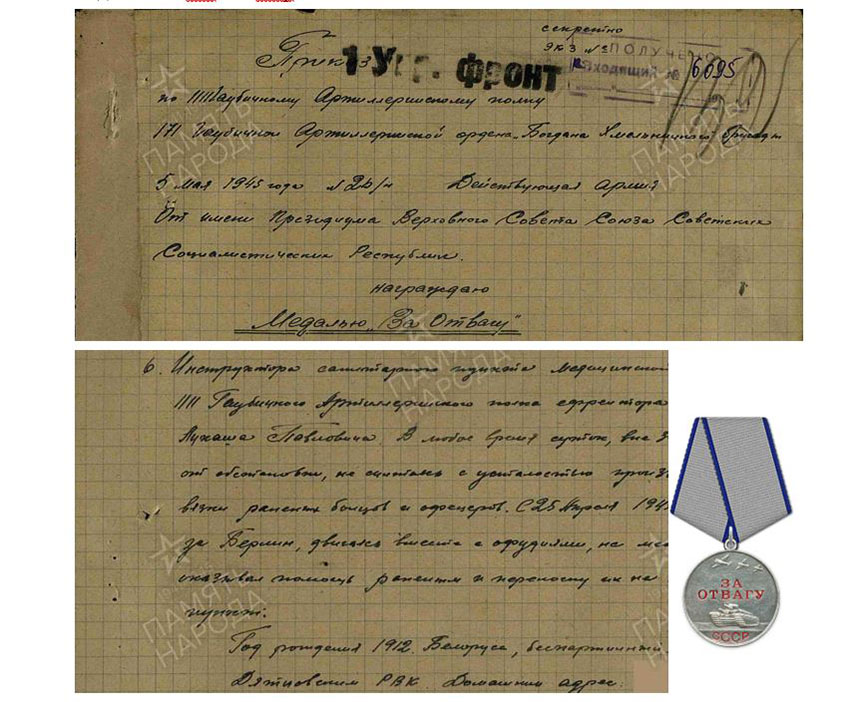 секретно
Приказ
1 Укр. фронт
экз №
ПОЛУЧЕНО
Входящий №
6095
по 1111 Гаубичному Артиллерийскому полку
171 Гаубичной Артиллерийской ордена „Богдана Хмельницкого" бригады
5 мая 1945 года №2б/н Действующая армия
От имени Президиума Верховного Совета Союза Советских
Социалистических Республик.
награждаю
Медалью „За Отвагу"
6. Инструктора санитарного пункта медицинской
1111 Гаубичного Артиллерийского полка ефрейтора
Лукаша Павловича. В любое время суток, вне з
от обстановки, не считаясь с усталостью произ
вязки раненых бойцов и офицеров. С 25 Апреля 194
за Берлин, двигаясь вместе с орудиями, на мес
оказывал помощь раненым и переноску их на
пункт.
Год рождения 1912. Белорус, беспартийный.
Дятловским РВК. Домашний адрес:
ЗА
ОТВАГУ
СССР
ПАМЯТЬ
НАРОДА
ПАМЯТЬ
НАРОДА
ПАМЯТЬ
НАРОДА
ПАМЯТЬ
НАРОДА